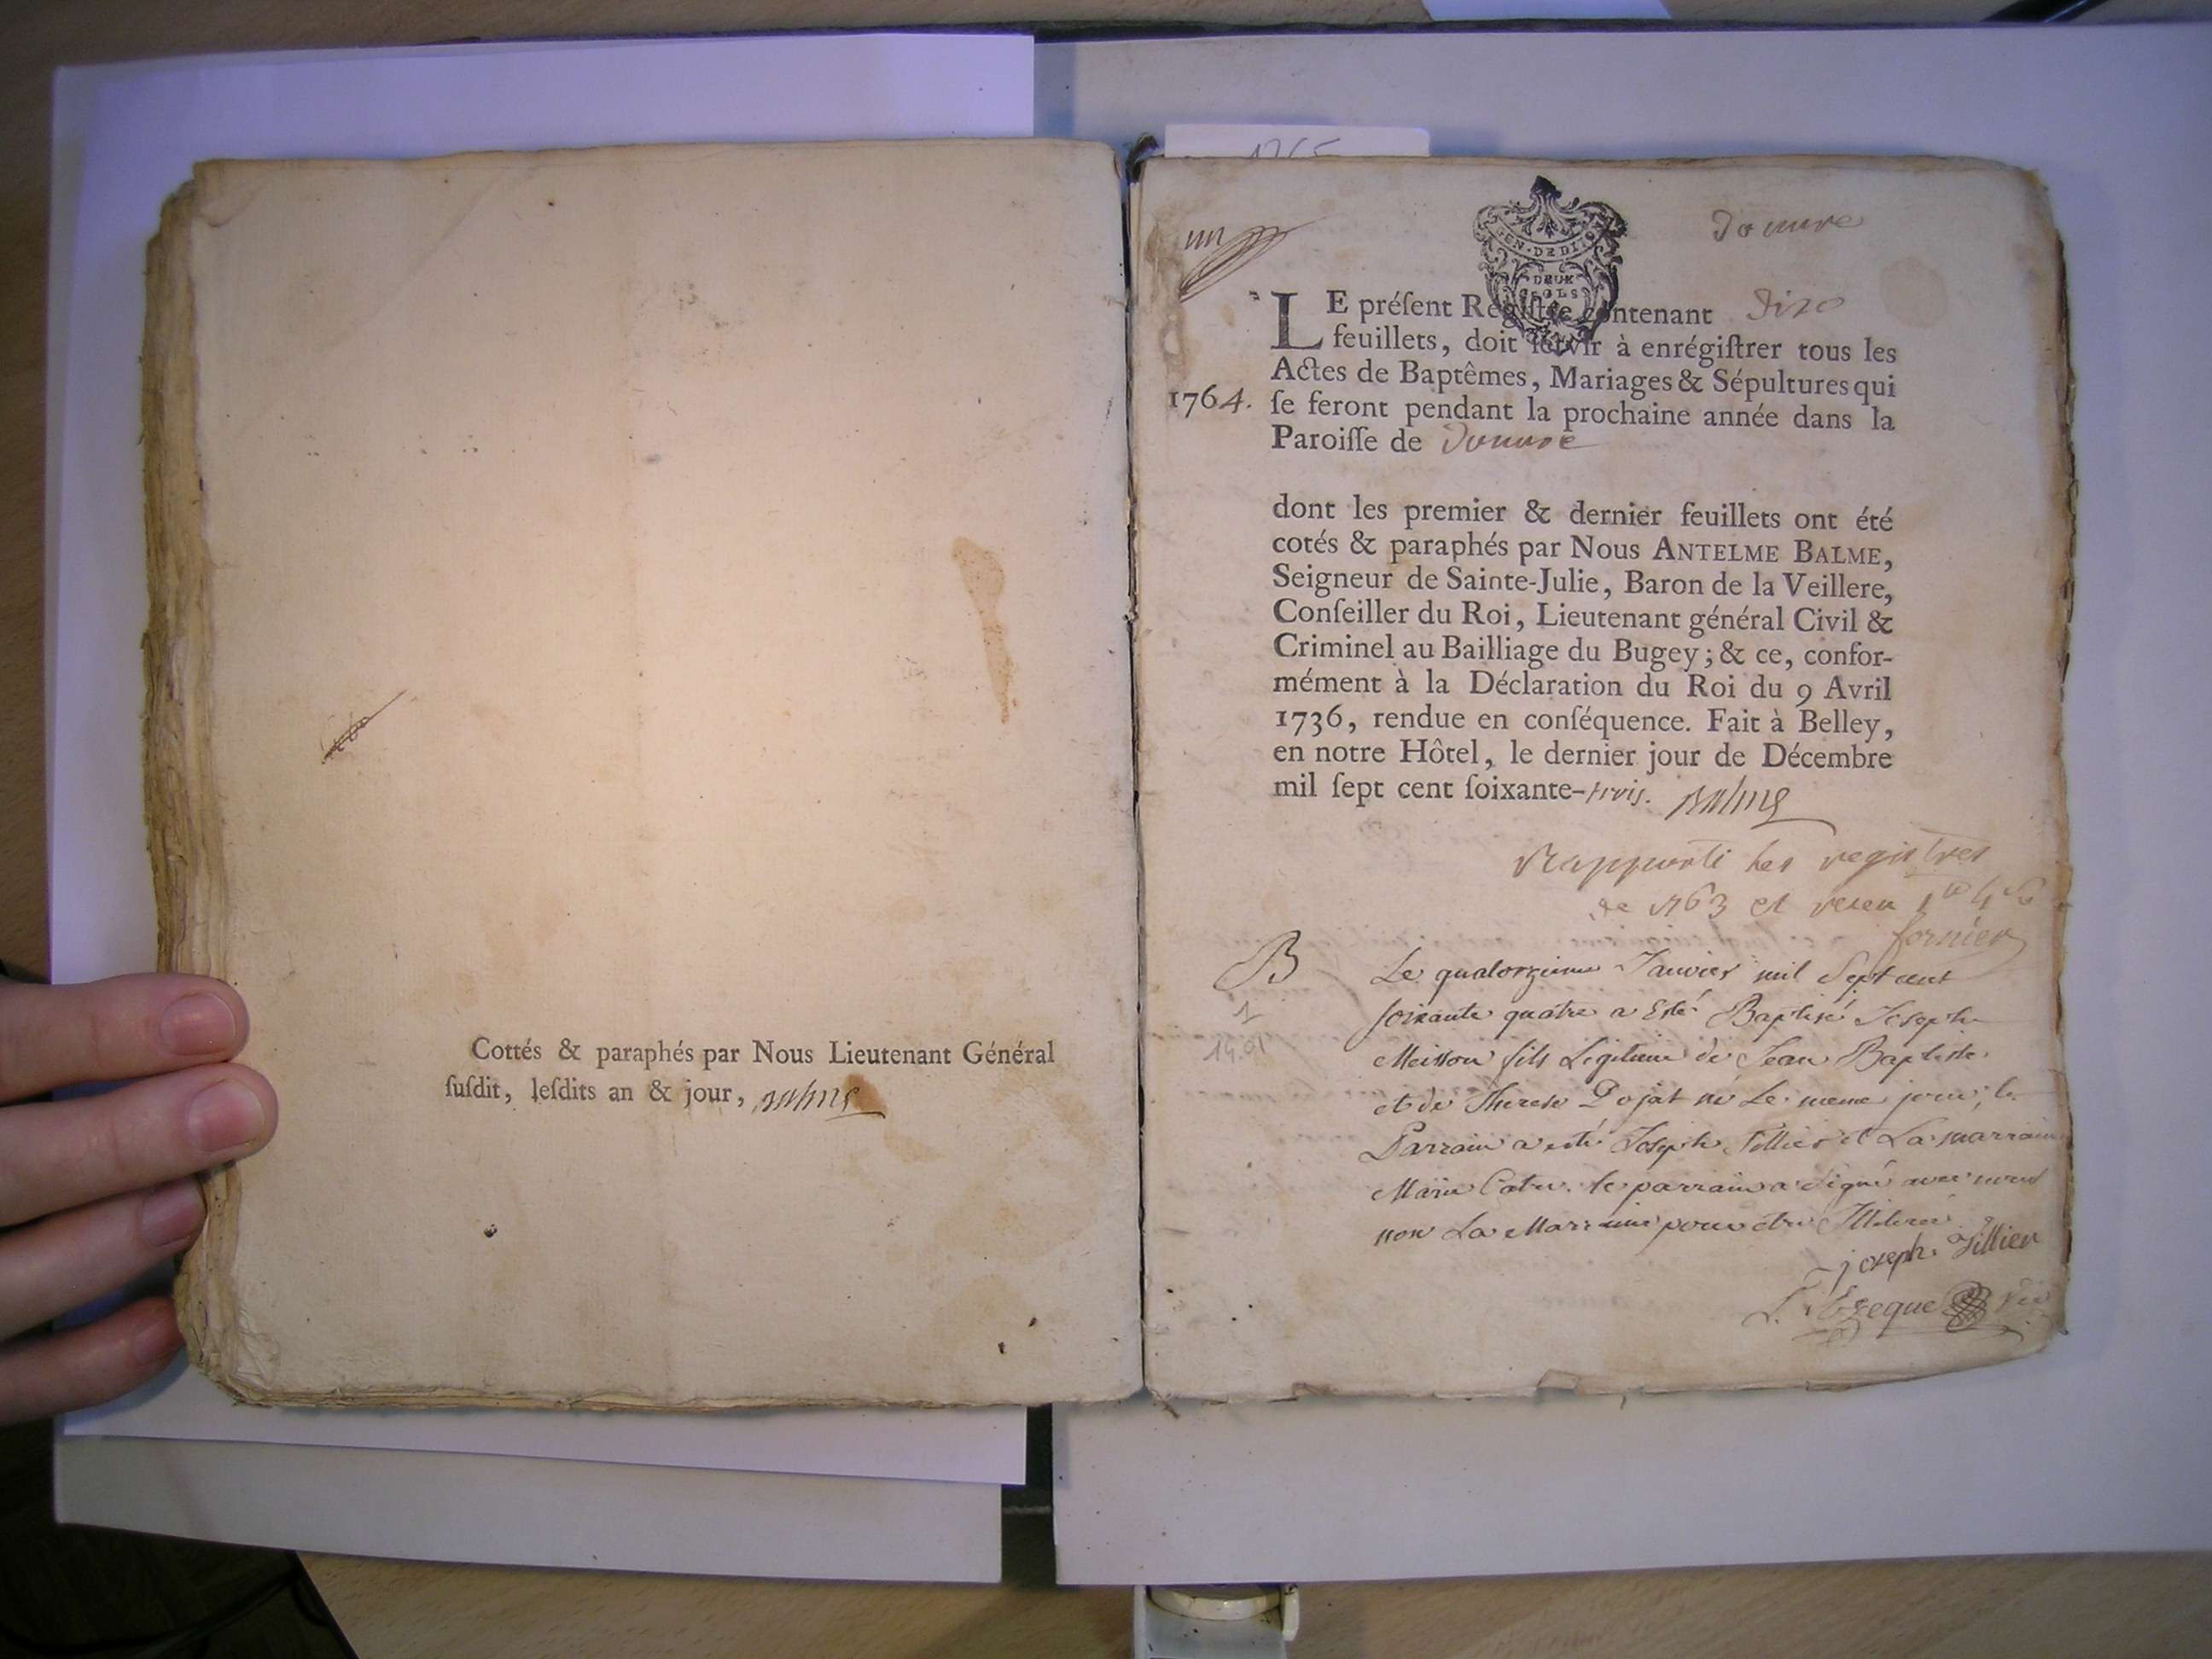 Cottés & paraphés par Nous Lieutenant Général
ſuſdit, leſdits an & jour, Balme
un
GEN. DE DIJON
DEUX
SOLS
Douvre
LE préſent Regiſtre contenant Dix
feuillets, doit ſervir à enrégiſtrer tous les
Actes de Baptêmes, Mariages & Sépultures qui
1764. ſe feront pendant la prochaine année dans la
Paroiſſe de Douvre
dont les premier & dernier feuillets ont été
cotés & paraphés par Nous ANTELME BALME,
Seigneur de Sainte-Julie, Baron de la Veillere,
Conſeiller du Roi, Lieutenant général Civil &
Criminel au Bailliage du Bugey ; & ce, confor-
mément à la Déclaration du Roi du 9 Avril
1736, rendue en conſéquence. Fait à Belley,
en notre Hôtel, le dernier jour de Décembre
mil ſept cent ſoixante-trois. Balme
Rapporté les registres
de 1763 et receu
fornier
B
1
14.01
Le quatorzieme Janvier mil Sept cent
soixante quatre a Esté Baptisé Joseph
Meisson fils Legitime de Jean Baptiste
et de Therese Dojat né Le meme jour, le
Parrain a esté Joseph Tillier et La marraine
Marie Catu. le parrain a signé avec nous
non La Marraine pour etre Illiteree
joseph tillier
L'Eveque Vic